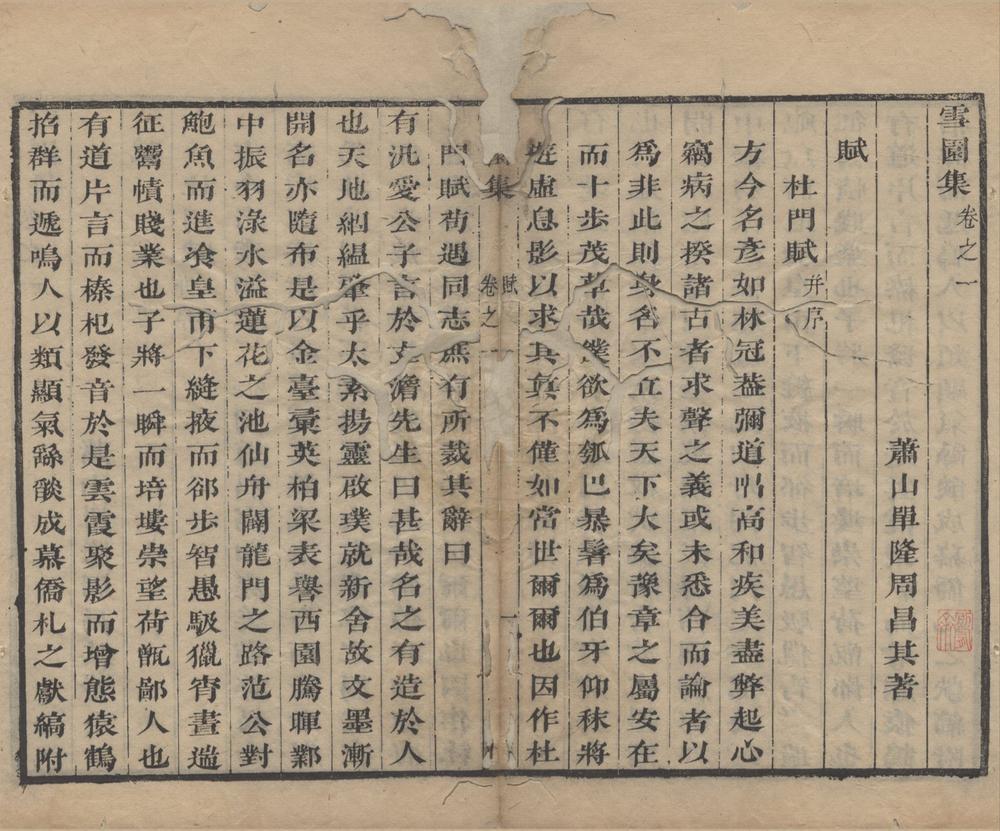 雲園集卷之一
蕭山單隆周昌其著
賦
杜門賦并序
方今名彥如林冠葢彌道唱高和疾美盡弊起心
竊病之揆諸古者求聲之義或未悉合而論者以
爲非此則身名不立夫天下大矣豫章之屬安在
而十步茂草哉僕欲爲瓠巴暴鬐爲伯牙仰秣將
遊虛息影以求其眞不僅如當世爾爾也因作杜
集 賦 卷之 一
門賦茍遇同志庶有所裁其辭曰
有汎愛公子言於玄澹先生曰甚哉名之有造於人
也天地絪縕肇乎太素揚靈啟璞就新舍故文墨漸
開名亦隨布是以金臺彙英柏梁表譽西園騰暉鄴
中振羽淥水溢蓮花之池仙舟闢龍門之路范公對
鮑魚而進飡皇甫下縫掖而郤步智愚馺獵宵晝遄
征鬻憤賤業也子將一瞬而培塿崇望荷甑鄙人也
有道片言而榛杞發音於是雲霞聚影而增態猿鶴
招群而遞鳴人以類顯氣繇燄成慕僑札之獻縞附